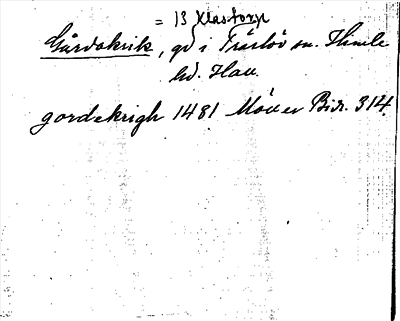 = 13 Klastorp
Gårdakrik, gd i Träslöv sn. Himle
hd. Hall.
gordekrigh 1481 Möller Bidr. 314.